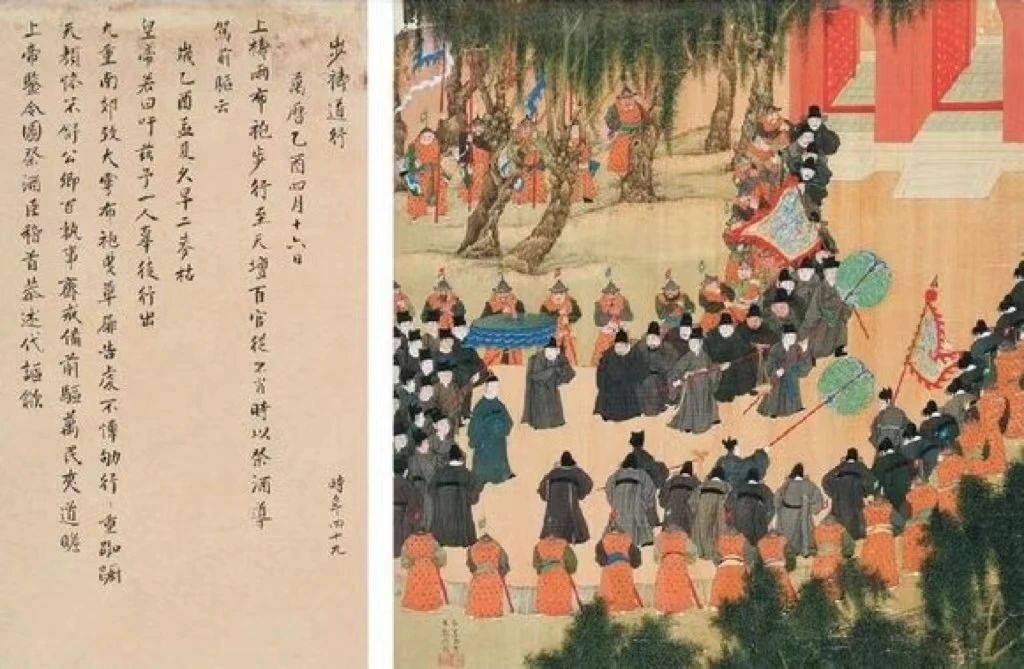 步禱道行
時年四十九
萬曆乙酉四月十六日
上禱雨布袍步行至天壇百官從不肖時以祭酒導
駕前驅云
歲乙酉孟夏久旱二麥枯
皇帝若曰吁茲予一人辜徒行出
九重南郊致大雩布袍曳草屨告虔不憚劬行〻重踟躕
天顏慘不舒公卿百執事齋戒備前驅萬民夾道瞻
上帝鑒令圖祭酒臣稽首恭述代謳歈